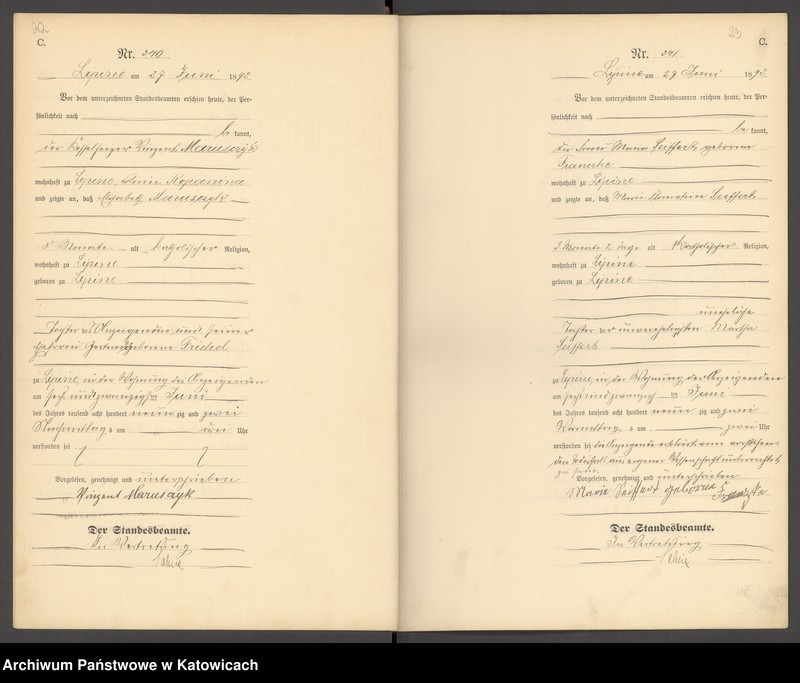 C.
Nr. 240
Lipine am 27 Juni 1892
Vor dem unterzeichneten Standesbeamten erschien heute, der Per-
sönlichkeit nach
be kannt,
der Kesselheizer Vinzent Maruszyk
wohnhaft zu Lipine, Kopanina
und zeigte an, daß Maruszyk
5 Monate alt katholischer Religion,
wohnhaft zu Lipine
geboren zu Lipine
Tochter des Anzeigenden und seiner
Ehefrau geborene
zu Lipine, in der Wohnung des Anzeigenden
am sechs und zwanzigsten Juni
des Jahres tausend acht hundert neun zig und zwei
Nachmittags um drei Uhr
verstorben sei
Vorgelesen, genehmigt und unterschrieben
Vinzent Maruszyk
Der Standesbeamte.
In Vertretung
213
C.
Nr. 241
Lipine am 27 Juni 1892
Vor dem unterzeichneten Standesbeamten erschien heute, der Per-
sönlichkeit nach
be kannt,
die Frau Maria Seiffert geborene
wohnhaft zu Lipine
und zeigte an, daß Marie Seiffert
5 Monate 2 Tage alt katholischer Religion,
wohnhaft zu Lipine
geboren zu Lipine
uneheliche
Tochter der unverehelichten Martha
Seiffert
zu Lipine, in der Wohnung der Anzeigenden
am sechs und zwanzigsten Juni
des Jahres tausend acht hundert neun zig und zwei
Vormittags um zwei Uhr
verstorben sei die Anzeigende erklärt, von vorstehen-
den Todesfall aus eigener Wissenschaft unterrichtet
zu sein.
Vorgelesen, genehmigt und unterschrieben
Marie Seiffert geborene
Der Standesbeamte.
In Vertretung
Archiwum Państwowe w Katowicach